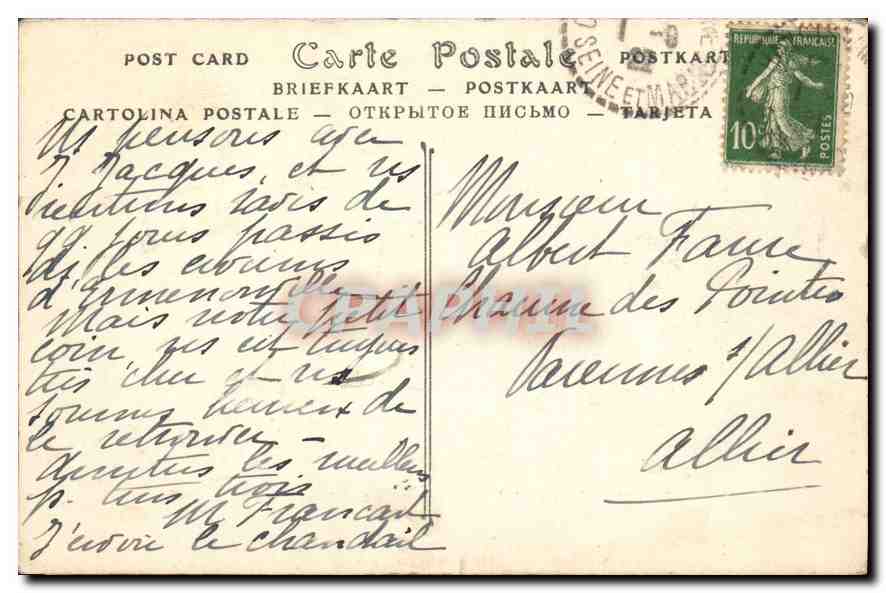 POST CARD Carte Postale POSTKARTE
BRIEFKAART — POSTKAART
CARTOLINA POSTALE — ОТКРЫТОЕ ПИСЬМО — TARJETA
SEINE ET MARNE
REPUBLIQUE FRANÇAISE
10c
POSTES
Ns pensons avec
J Jacques, et ns
ravis de
qq jours passés
ds les environs
d'Armenonville
Mais notre petit
coin, ns est toujours
très cher et ns
sommes heureux de
le retrouver —
amitiés les meilleures
p. tous trois
M Francart
J'envoie le chandail
Monsieur
Albert Faure
Chaume des Pointes
Varennes s/Allier
Allier
CPAPHIL